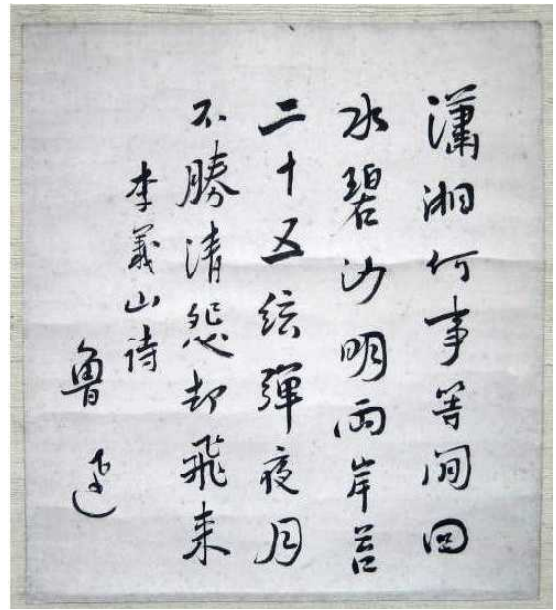 瀟湘何事等閒回
水碧沙明兩岸苔
二十五絃彈夜月
不勝清怨却飛来
李義山诗
魯迅